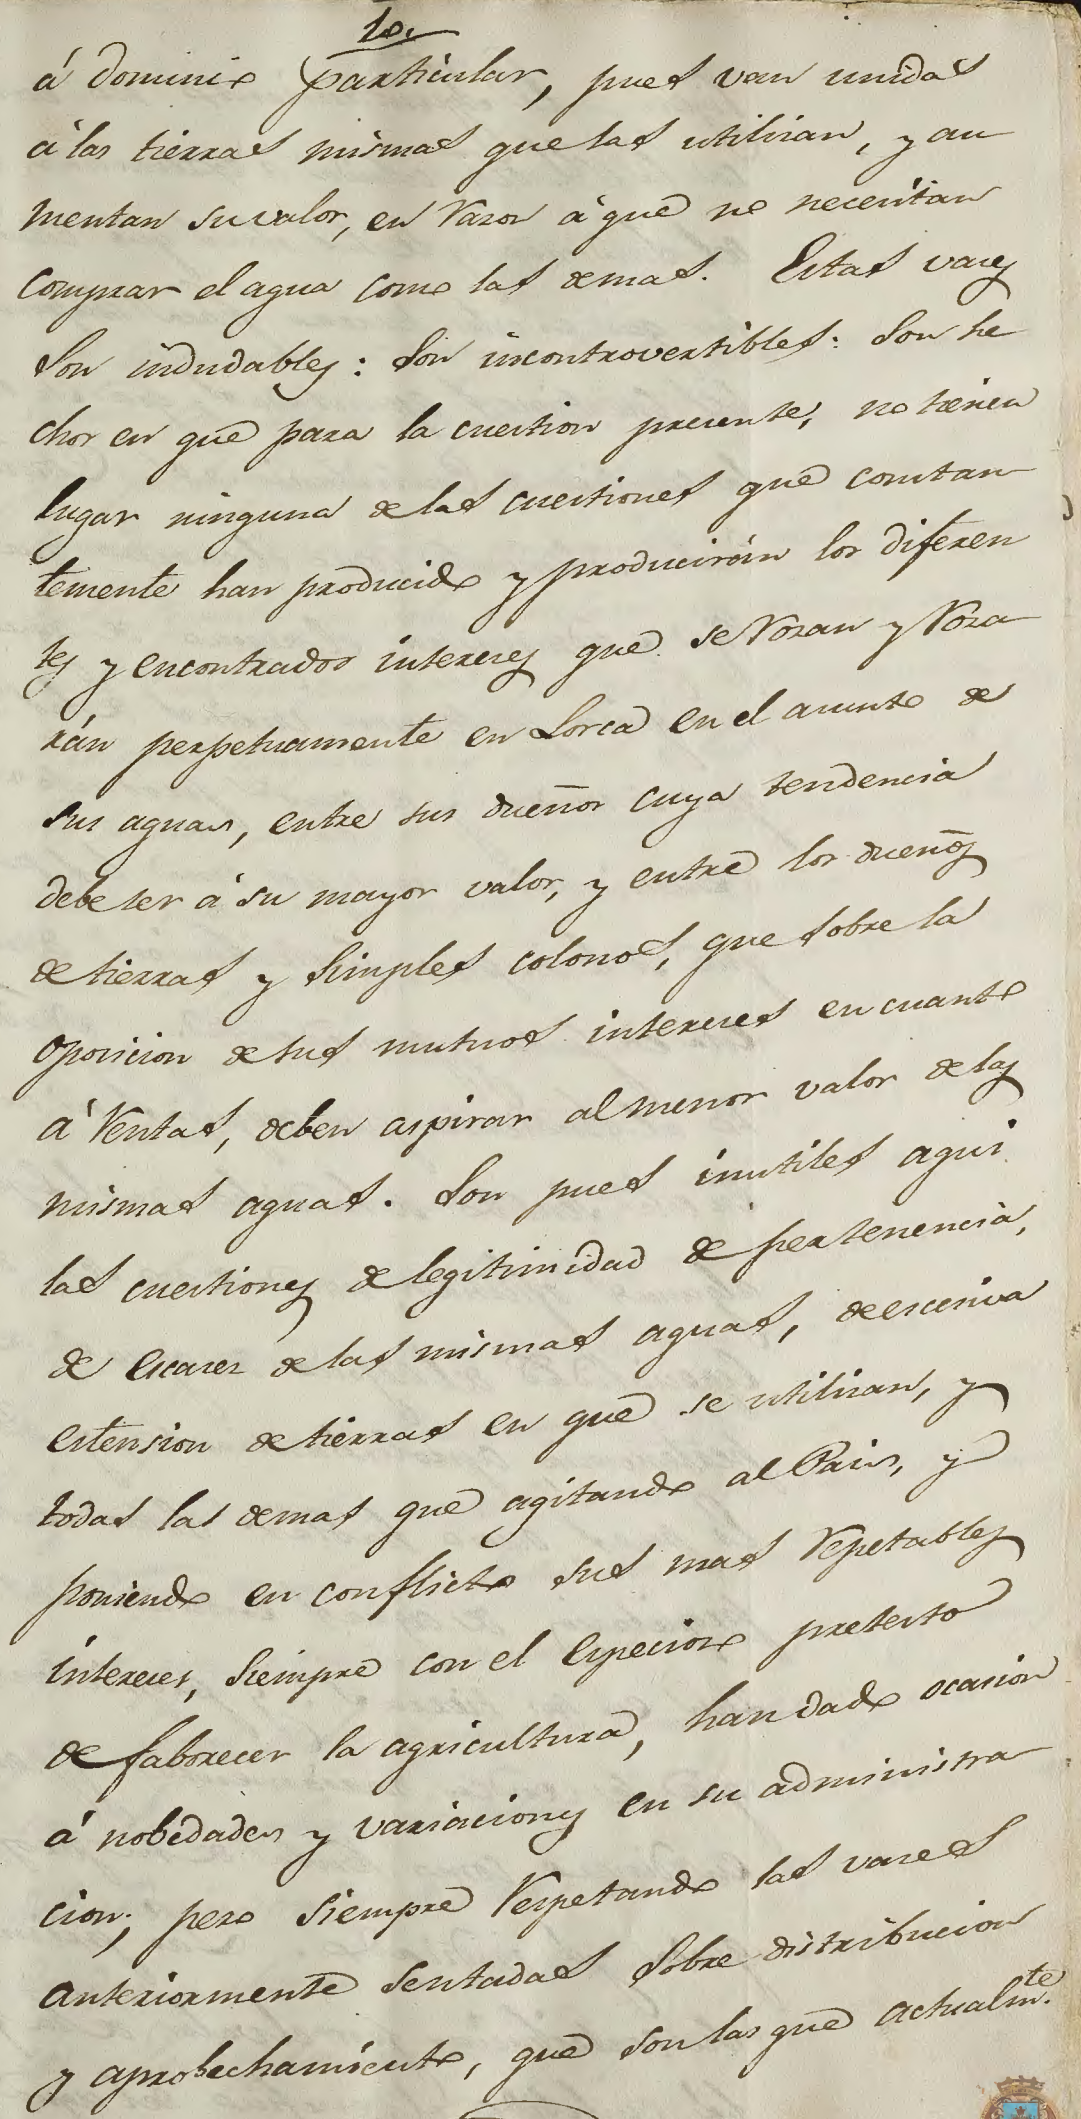 10.
á dominio particular, pues van unidas
á las tierras mismas que las utilizan, y au
mentan su valor, en razon á que no necesitan
comprar el agua como las demas. Estas vases
son indudables: son incontrovertibles: son he
chos en que para la cuestion presente, no tienen
lugar ninguna de las cuestiones que constan
temente han producido y produciràn los diferen
tes y encontrados intereses que se rozan y roza
rán perpetuamente en Lorca en el asunto de
sus aguas, entre sus dueños cuya tendencia
debe ser á su mayor valor, y entre los dueños
de tierras y simples colonos, que sobre la
oposicion de sus mutuos intereses en cuanto
á rentas, deben aspirar al menor valor de las
mismas aguas. Son pues inutiles aqui
las cuestiones de legitimidad de pertenencia,
de escasez de las mismas aguas, de escesiva
estension de tierras en que se utilizan, y
todas las demas que agitando al Pais, y
poniendo en conflicto sus mas respetables
intereses, siempre con el especioso pretesto
de faborecer la agricultura, han dado ocasion
á nobedades y variaciones en su administra
cion; pero siempre respetando las vases
anteriormente sentadas sobre distribucion
y aprobechamiento, que son las que actualm.te